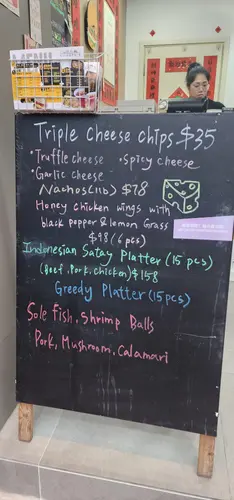 Triple cheese chips $35
• Truffle cheese • Spicy cheese
• Garlic cheese
Nachos(1lb) $78
Honey chicken wings with
black pepper & lemon Grass
$98 (6 pcs)
Indonesian Satay Platter (15 pcs)
(Beef, Pork, chicken) $158
Greedy Platter (15pcs)
Sole fish, Shrimp Balls
Pork, Mushroom, Calamari